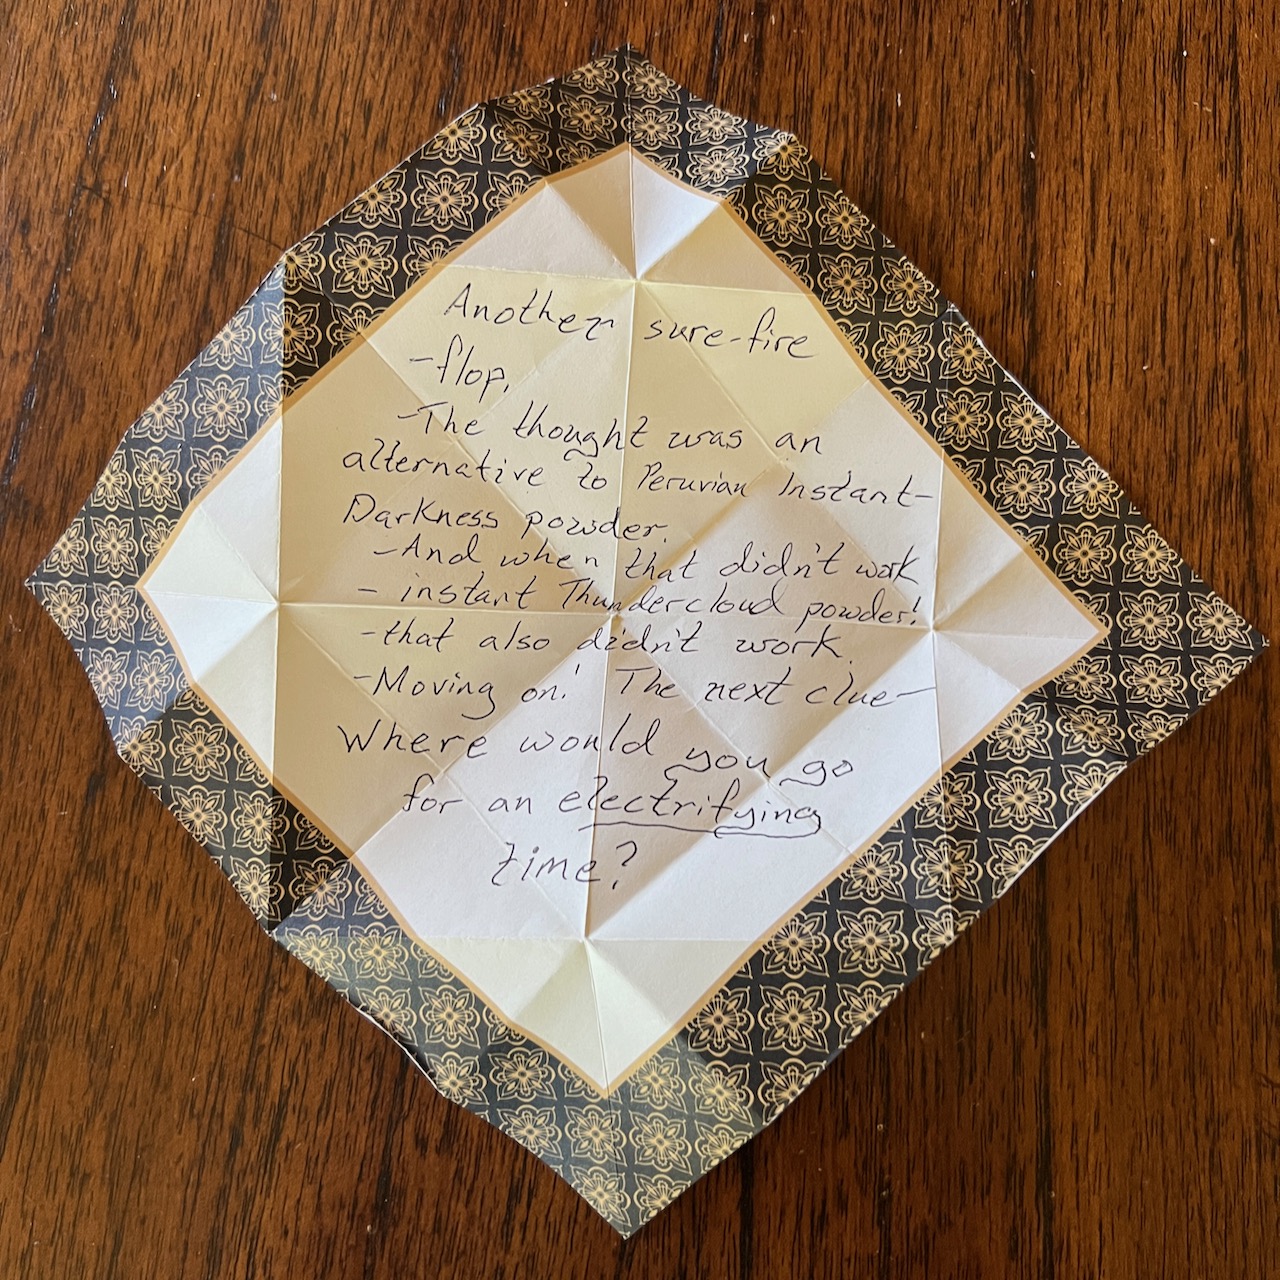 Another sure-fire
-flop.
-The thought was an
alternative to Peruvian Instant-
Darkness powder.
-And when that didn't work
- instant Thundercloud powder!
-that also didn't work.
-Moving on! The next clue-
Where would you go
for an electrifying
time?